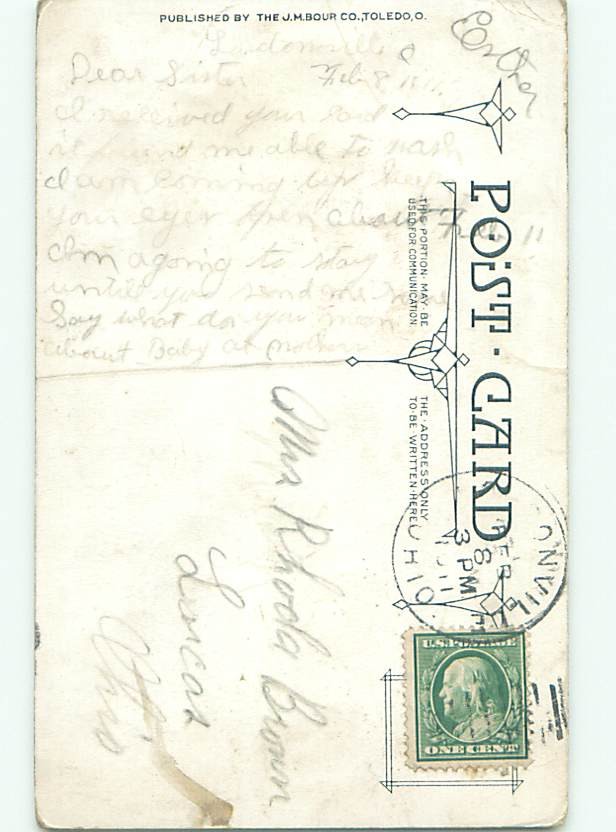 PUBLISHED BY THE J.M.BOUR CO., TOLEDO, O.
Esther
Loudonville O
Dear Sister Feb 8 1911
I received your card
it found me able to wash
I am coming up keep
your eyes open about Feb 11
Am agoing to stay
until you send me home
Say what do you mean
about Baby at mothers
POST·CARD
THIS PORTION MAY BE
USED FOR COMMUNICATION.
THE ADDRESS ONLY
TO BE WRITTEN HERE
ONVIL
FEB
8
3 PM
1911
OHIO
U.S. POSTAGE
ONE CENT
Mrs Rhoda Brown
Lucas
Ohio